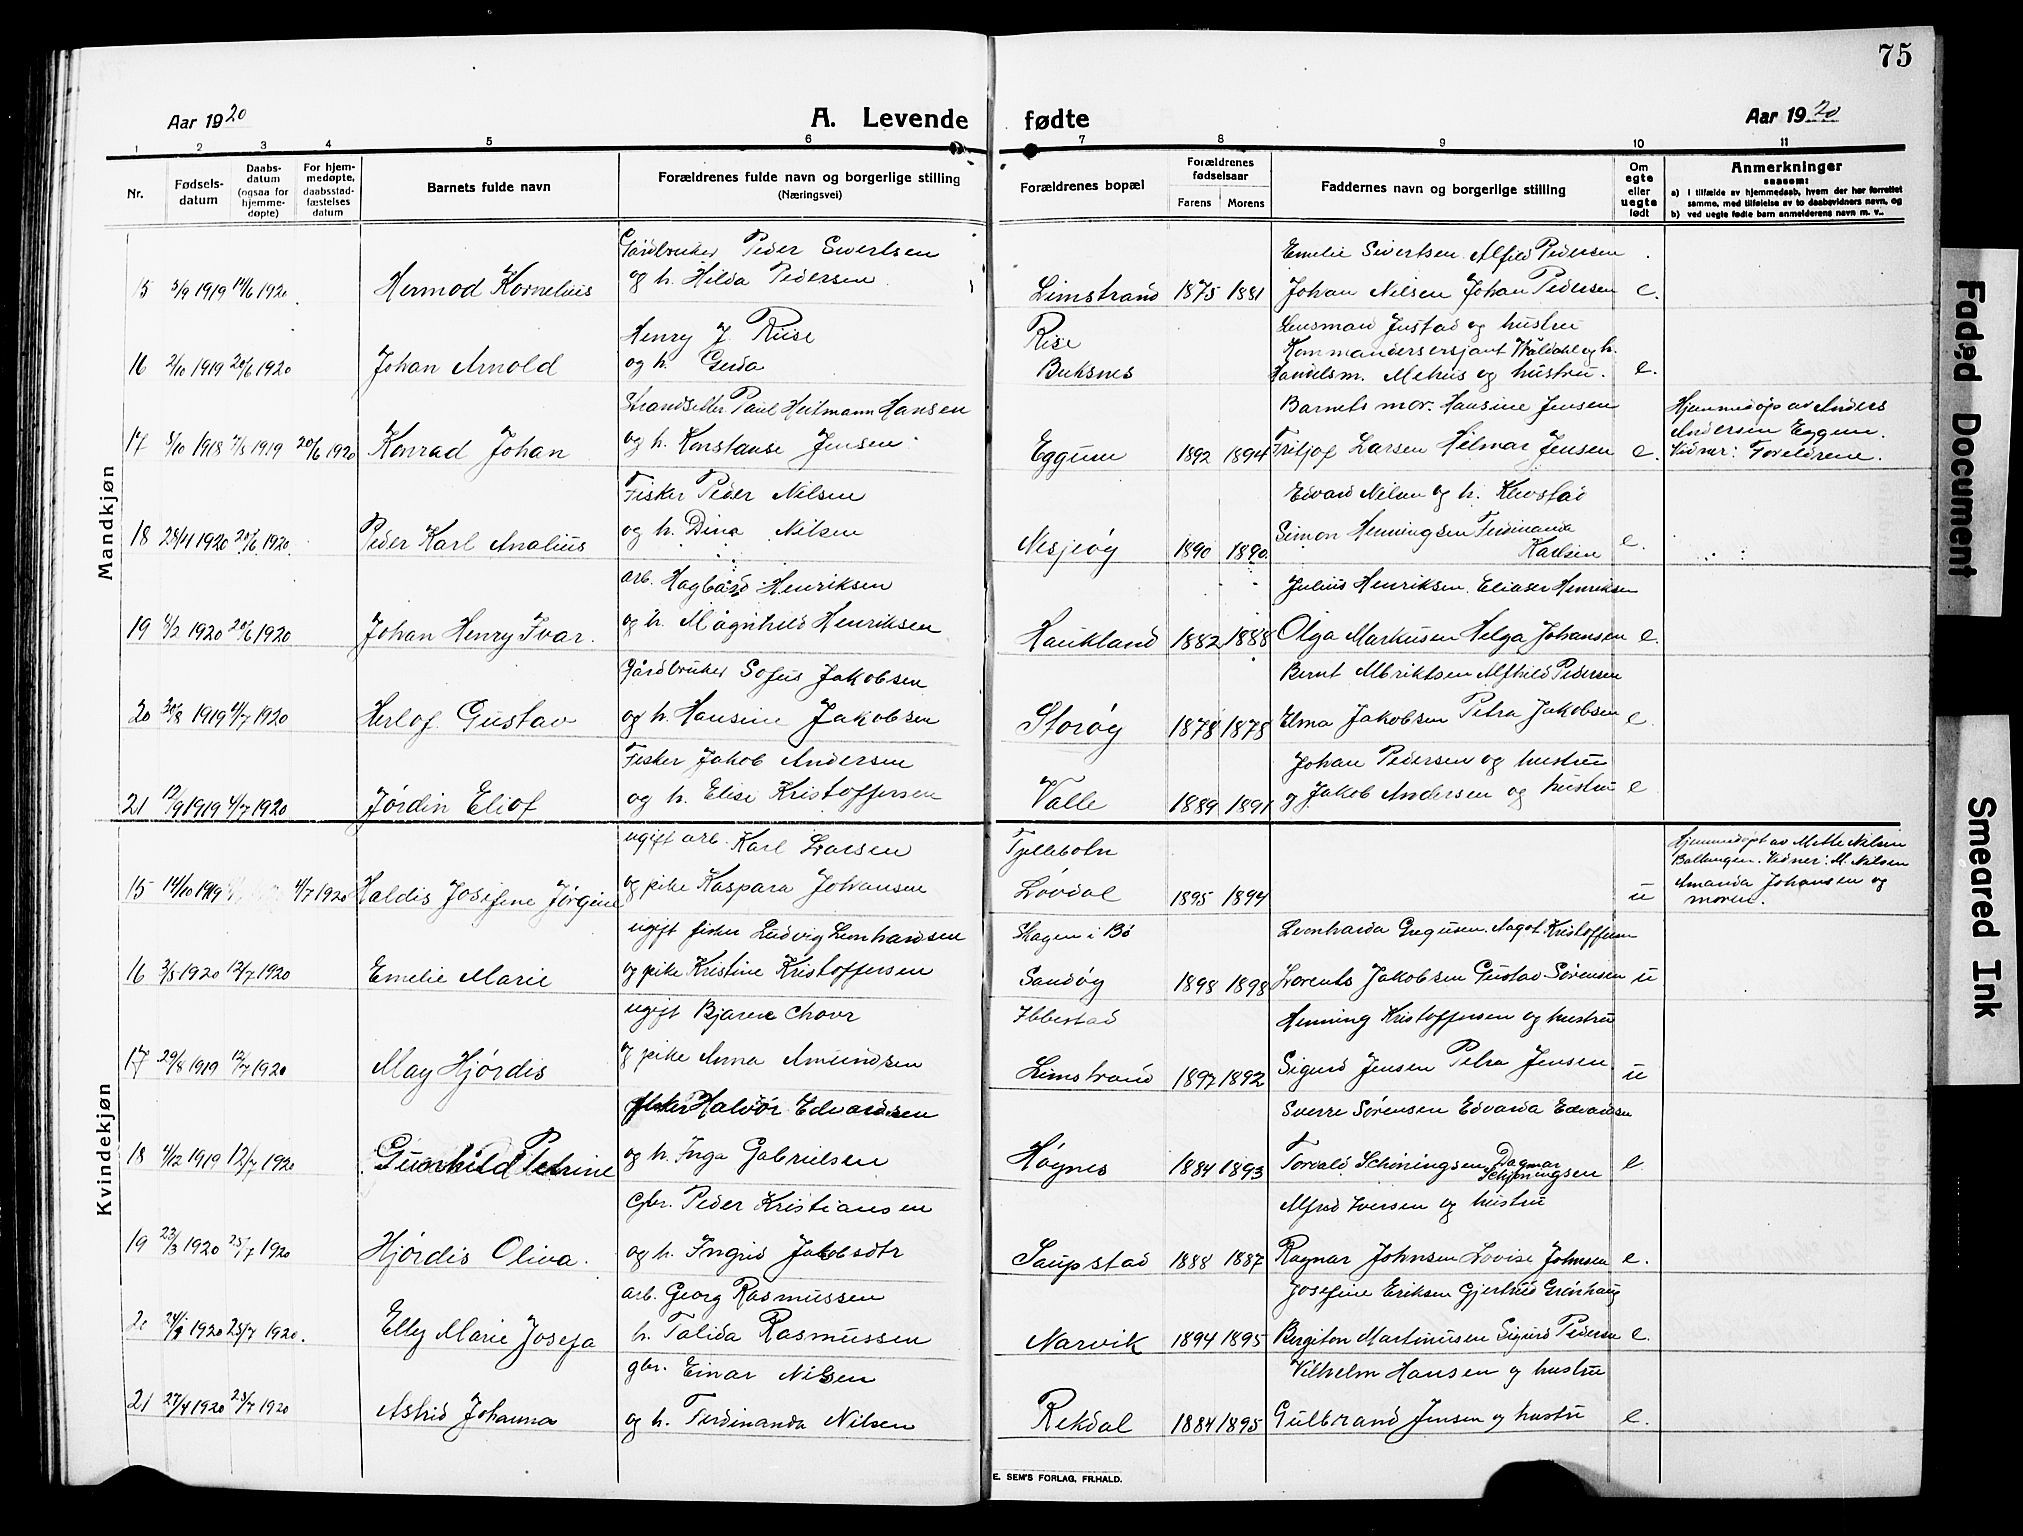 75
Aar 1920
A. Levende fødte
Aar 1920
1 2 3 4 5 6 7 8 9 10 11
Nr.
Fødsels-
datum
Daabs-
datum
(ogsaa for
hjemme-
døpte)
For hjem-
medøpte,
daabsstad-
fæstelses
datum
Barnets fulde navn
Forældrenes fulde navn og borgerlige stilling
(Næringsvei)
Forældrenes bopæl
Forældrenes
fødselsaar
Farens Morens
Faddernes navn og borgerlige stilling
Om
egte
eller
uegte
født
Anmerkninger
saasom:
a) i tilfælde av hjemmedaab, hvem der har forrettet
samme, med tilføielse av to daabsvidners navn, og
b) ved uegte fødte barn anmelderens navn m. v..
Mandkjøn
Gårdbruker Peder Sivertsen Emelie Sivertsen Alfild Pedersen
15 5/9 1919 14/6 1920 Hermod Kornelius og h. Hilda Pedersen Limstrand 1875 1881 Johan Nilsen Johan Pedersen e.
Henry J. Riise Rise Lensmand Justad og hustru
Kommandersersjant Waldahl og h.
16 2/10 1919 20/6 1920 Johan Arnold og h. Gerda Buksnes Handelsm. Mehus og hustru. e.
Strandsitter Paul Heitmann Hansen Barnets mor. Hansine Jensen Hjemmedøpt av Anders
17 8/10 1918 7/3 1919 20/6 1920 Konrad Johan og h. Konstanse Jensen Eggum 1892 1894 Fritjof Larsen Hilmar Jensen e. Andersen Eggum.
Vidner: Foreldrene.
Fisker Peder Nilsen Edvard Nilsen og h. Klevstad
18 28/4 1920 20/6 1920 Peder Karl Analius og h. Dina Nilsen Nesjeøy 1890 1890 Simon Henningsen Ferdinanda
Karlsen e.
arb. Hagbård Henriksen Julius Henriksen. Eliaser Henriksen
19 8/2 1920 20/6 1920 Johan Henry Ivar. og h. Magnhild Henriksen Haukland 1882 1888 Olga Markusen Helga Johansen e.
Gårdbruker Sofus Jakobsen Bernt Albriktsen Alfhild Pedersen
20 20/8 1919 4/7 1920 Herlof Gustav og h. Hansine Jakobsen Storøy 1878 1878 Elma Jakobsen Petra Jakobsen e
Fisker Jakob Andersen Johan Pedersen og hustru
21 12/9 1919 4/7 1920 Jørdin Eliof og h. Elise Kristoffersen Valle 1889 1891 g Jakob Andersen og hustru e
Kvindekjøn
ugift arb. Karl Larsen Hjemmedøpt av Mette Nilsen
Ballangen. Vidner: M. Nilsen
15 14/10 1919 4/7 1920 Haldis Josefine Jørgine og pike Kaspara Johansen Løvdal 1895 1894 u Amanda Johansen og
moren.
ugift fisker Ludvig Leonhardsen Skagen i Bø Leonharda Gregusen. Aagot Kristoffersen
16 3/5 1920 12/7 1920 Emelie Marie og pike Kristine Kristoffersen Sandøy 1898 1898 Lorents Jakobsen Gustav Sørensen u
ugift Bjarne Ibbestad Henning Kristoffersen og hustru
17 29/8 1919 12/7 1920 May Hjørdis og pike Anna Amundsen Limstrand 1897 1892 Sigurd Jensen Petra Jensen u
fisker Halvor Edvardsen Sverre Sørensen Edvarda Edvardsen
18 4/12 1919 12/7 1920 Gunhild Petrine og h. Inga Gabrielsen Høynes 1884 1893 Torvald Schiningsen Dagmar
Schiningsen e
gbr. Peder Kristiansen Alfred Iversen og hustru
19 23/3 1920 25/7 1920 Hjørdis Oliva. og h. Ingrid Jakobsdtr Saupstad 1888 1887 Ragnar Johnsen Lovise Johnsen e.
arb. Georg Rasmussen Josefine Eriksen Gjertrud Grønhaug
20 1920 25/7 1920. Elly Marie Josefa h. Talida Rasmussen Narvik 1894 1895 Bergiton Martinusen Sigurd Pedersen e.
gbr. Einar Nilsen Vilhelm Hansen og hustru
21 27/4 1920 25/7 1920 Astrid Johanna og h. Ferdinanda Nilsen Rekdal 1884 1895 Gulbrand Jensen og hustru e.
E. SEM'S FORLAG, FR.HALD.
Faded Document
Smeared Ink